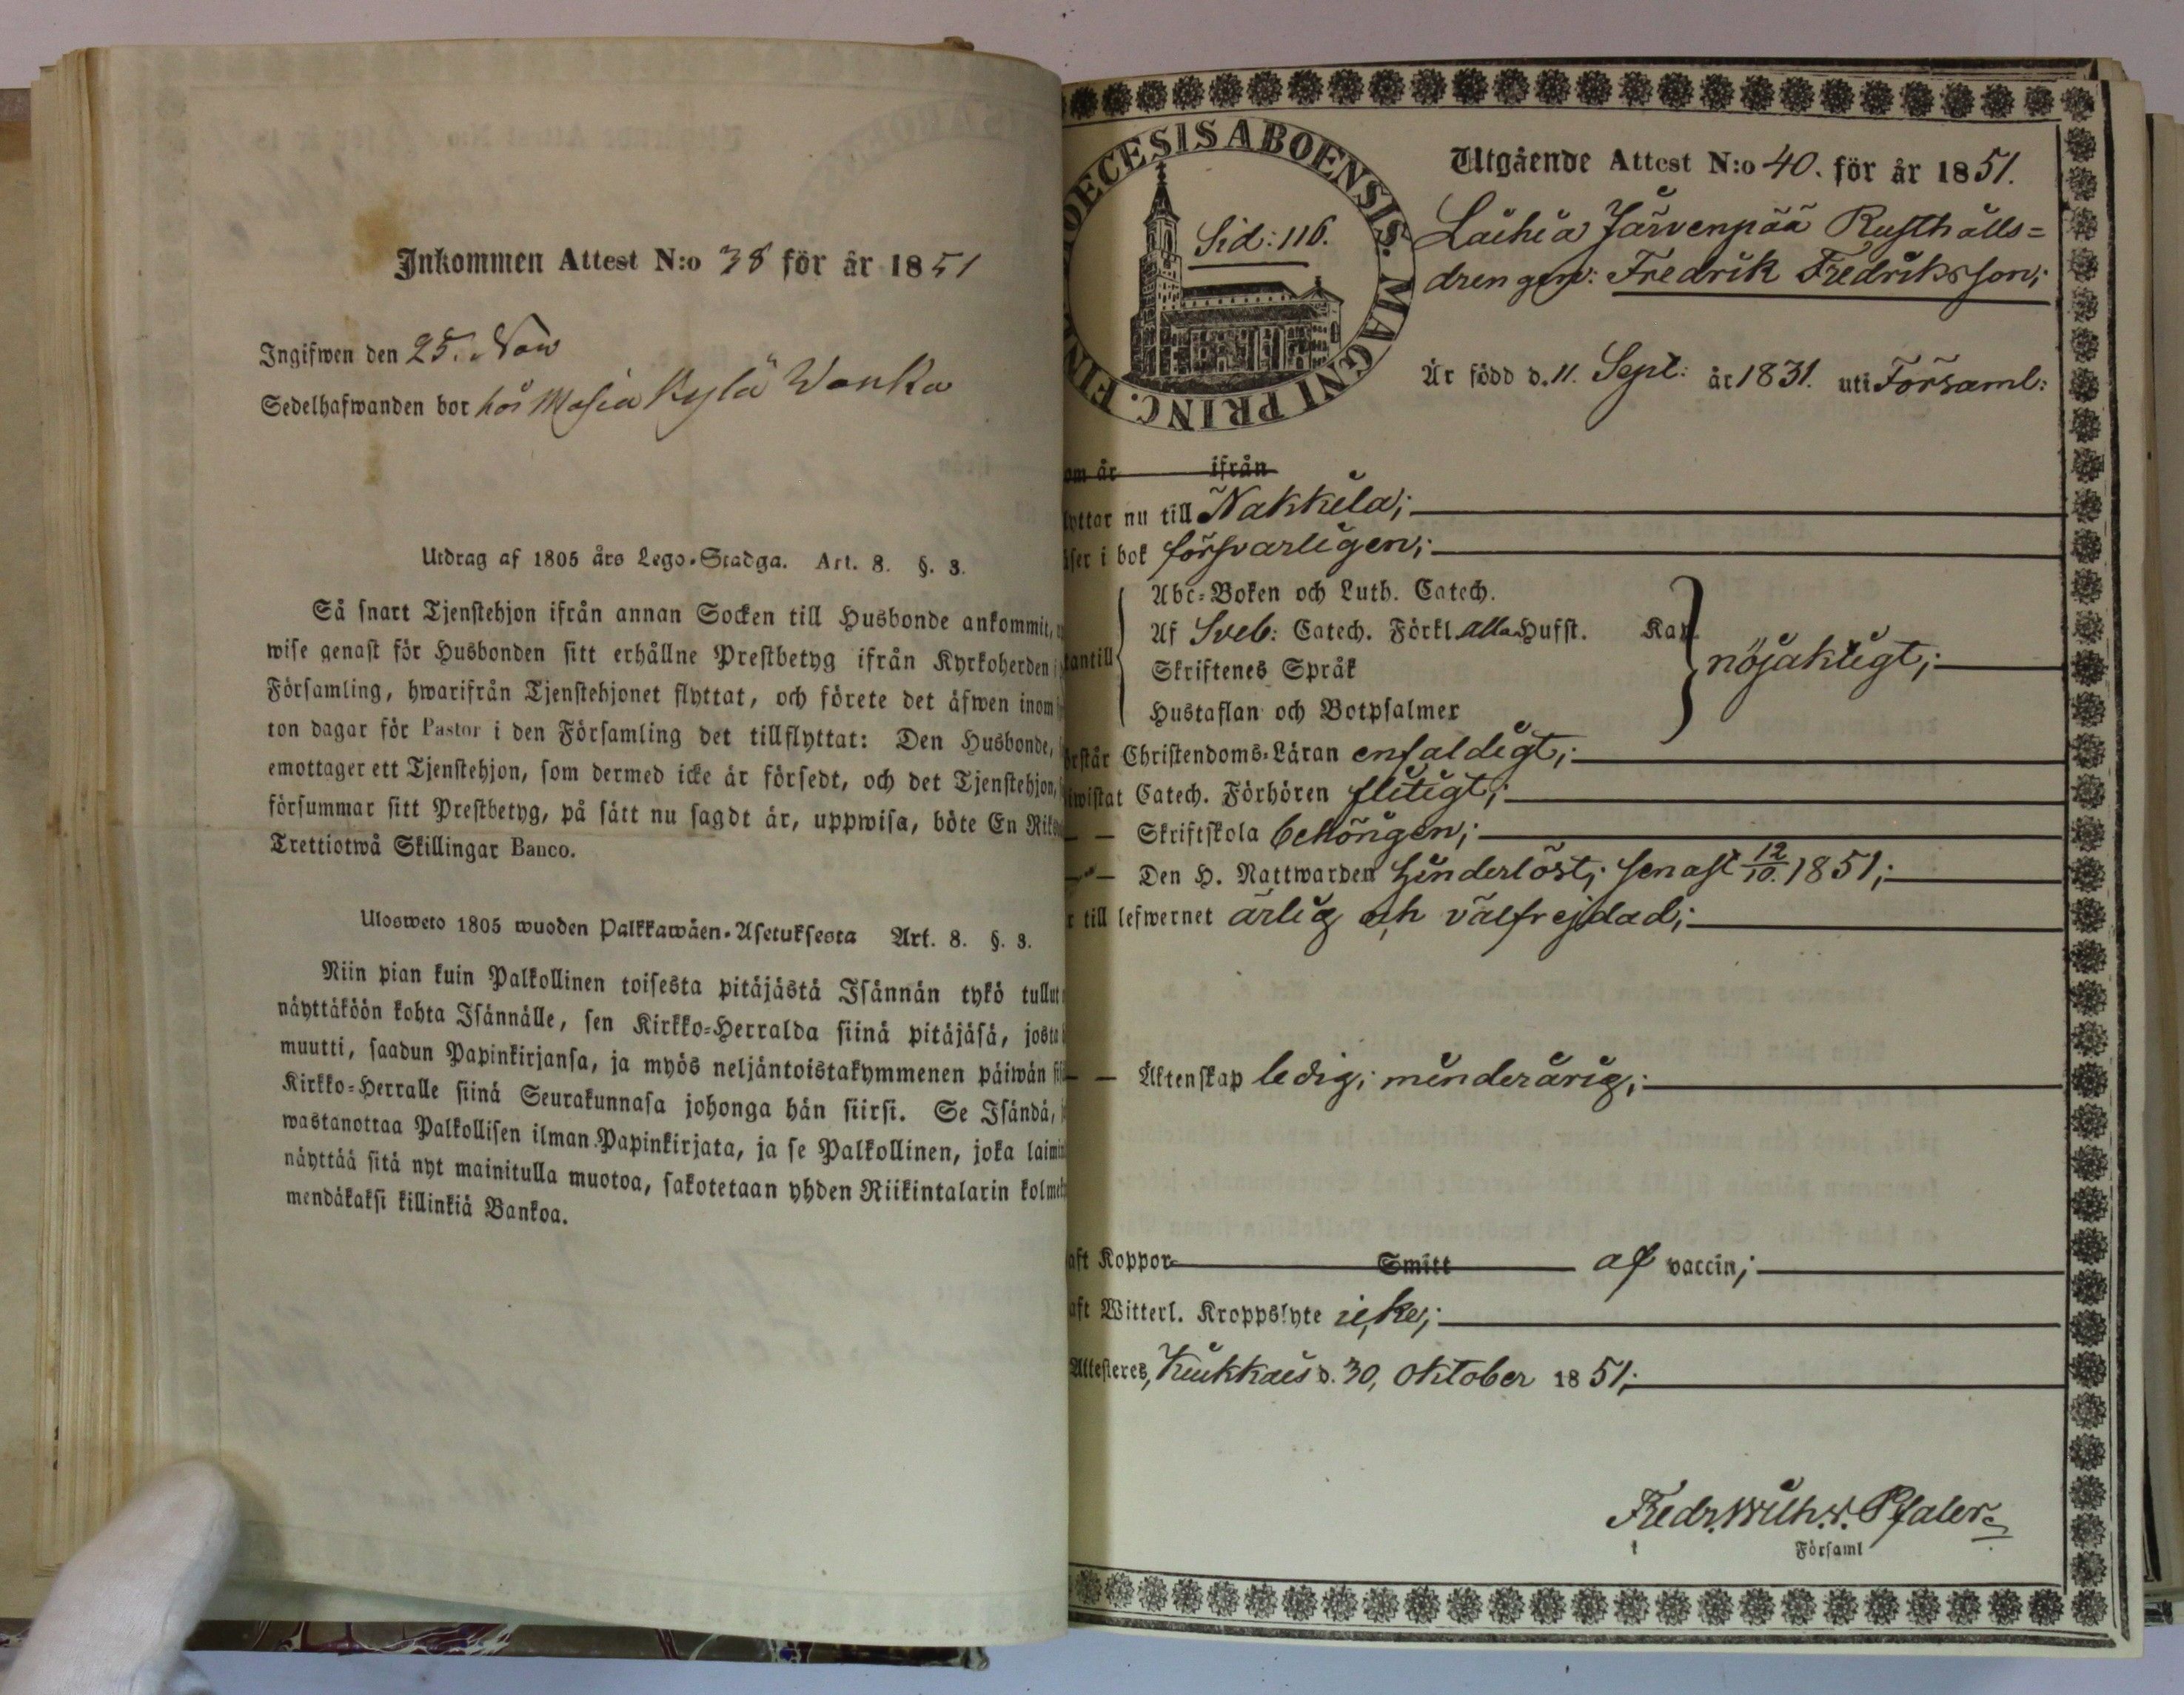 Inkommen Attest N:o 38 för år 1851
Ingifwen den 25. Nov
Sedelhafwanden bor hos Masia Kylä Wanka
Utdrag af 1805 års Lego-Stadga. Art. 8. §. 3.
Så snart Tjenstehjon ifrån annan Socken till Husbonde ankommit,
wise genast för Husbonden sitt erhållne Prestbetyg ifrån Kyrkoherden i
Församling, hwarifrån Tjenstehjonet flyttat, och förete det äfwen inom
ton dagar för Pastor i den Församling det tillflyttat: Den Husbonde,
emottager ett Tjenstehjon, som dermed icke är försedt, och det Tjenstehjon,
försummar sitt Prestbetyg, på sätt nu sagdt är, uppwisa, böte En Riks
Trettiotwå Skillingar Banco.
Ulosweto 1805 wuoden Palkkawäen-Asetuksesta Art. 8. §. 3.
Niin pian kuin Palkollinen toisesta pitäjästä Isännän tykö tullut
näyttäköön kohta Isännälle, sen Kirkko-Herralda siinä pitäjäsä, josta
muutti, saadun Papinkirjansa, ja myös neljäntoistakymmenen päiwän
Kirkko-Herralle siinä Seurakunnasa johonga hän siirsi. Se Isändä,
wastanottaa Palkollisen ilman Papinkirjata, ja se Palkollinen, joka laimin
näyttää sitä nyt mainitulla muotoa, sakotetaan yhden Riikintalarin kolme
mendäkaksi killinkiä Bankoa.
DIOECESIS ABOENSIS. MAGNI PRINC. FINL
Sid: 116.
Utgående Attest N:o 40. för år 1851.
Laihia Järvenpää Rusthålls=
drengen: Fredrik Fredriksson;
Är född d. 11. Sept: år 1831. uti Församl:
om år ifrån
lyttar nu till Nakkila;
äser i bok försvarligen;
Abc-Boken och Luth. Catech.
Af Sveb: Catech. Förkl. alla Hufst. Kap.
antill Skriftenes Språk nöjaktigt;
Hustaflan och Botpsalmer
örstår Christendoms-Läran enfaldigt;
iwistat Catech. Förhören flitigt;
— — Skriftskola behörigen;
— „ — Den H. Nattwarden hinderlöst; senast 12/10. 1851;
r till lefwernet ärlig och välfrejdad;
— — Äktenskap ledig; minderårig;
aft Koppor Smitt af vaccin;
aft Witterl. Kroppslyte icke;
Attesteres, Kiukkais d. 30, Oktober 1851;
Fredr. Wilh. v. Pfaler
Församl